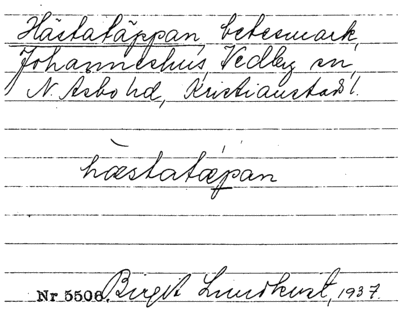 Hästatäppan, betesmark,
Johanneshus, Vedby sn,
N. Åsbo hd, Kristianstads l.
hæstatæpan
Nr 5506. Birgit Lundkvist, 1937.